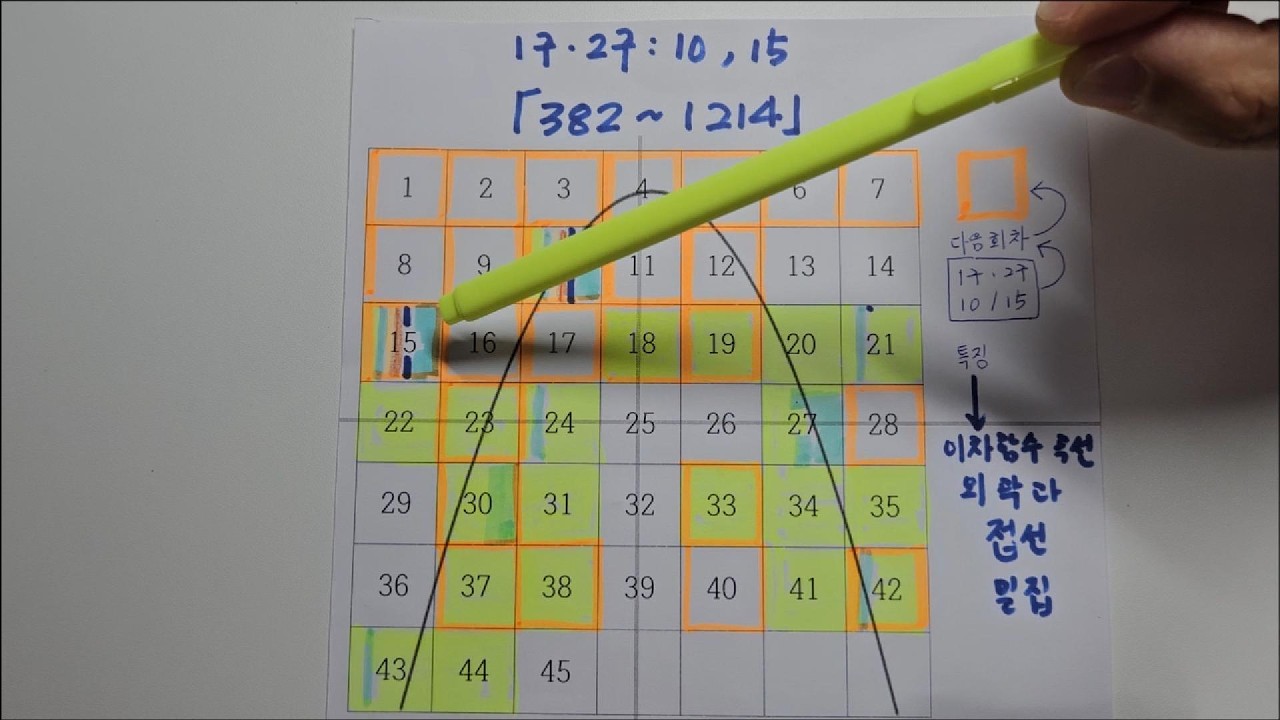 17·27:10, 15
「382~1214」
1 2 3 4 6 7
8 9 11 12 13 14
15 16 17 18 19 20 21
22 23 24 25 26 27 28
29 30 31 32 33 34 35
36 37 38 39 40 41 42
43 44 45
다음회차
17·27
10/15
특징
이차함수 곡선
외곽다
접선
밀집